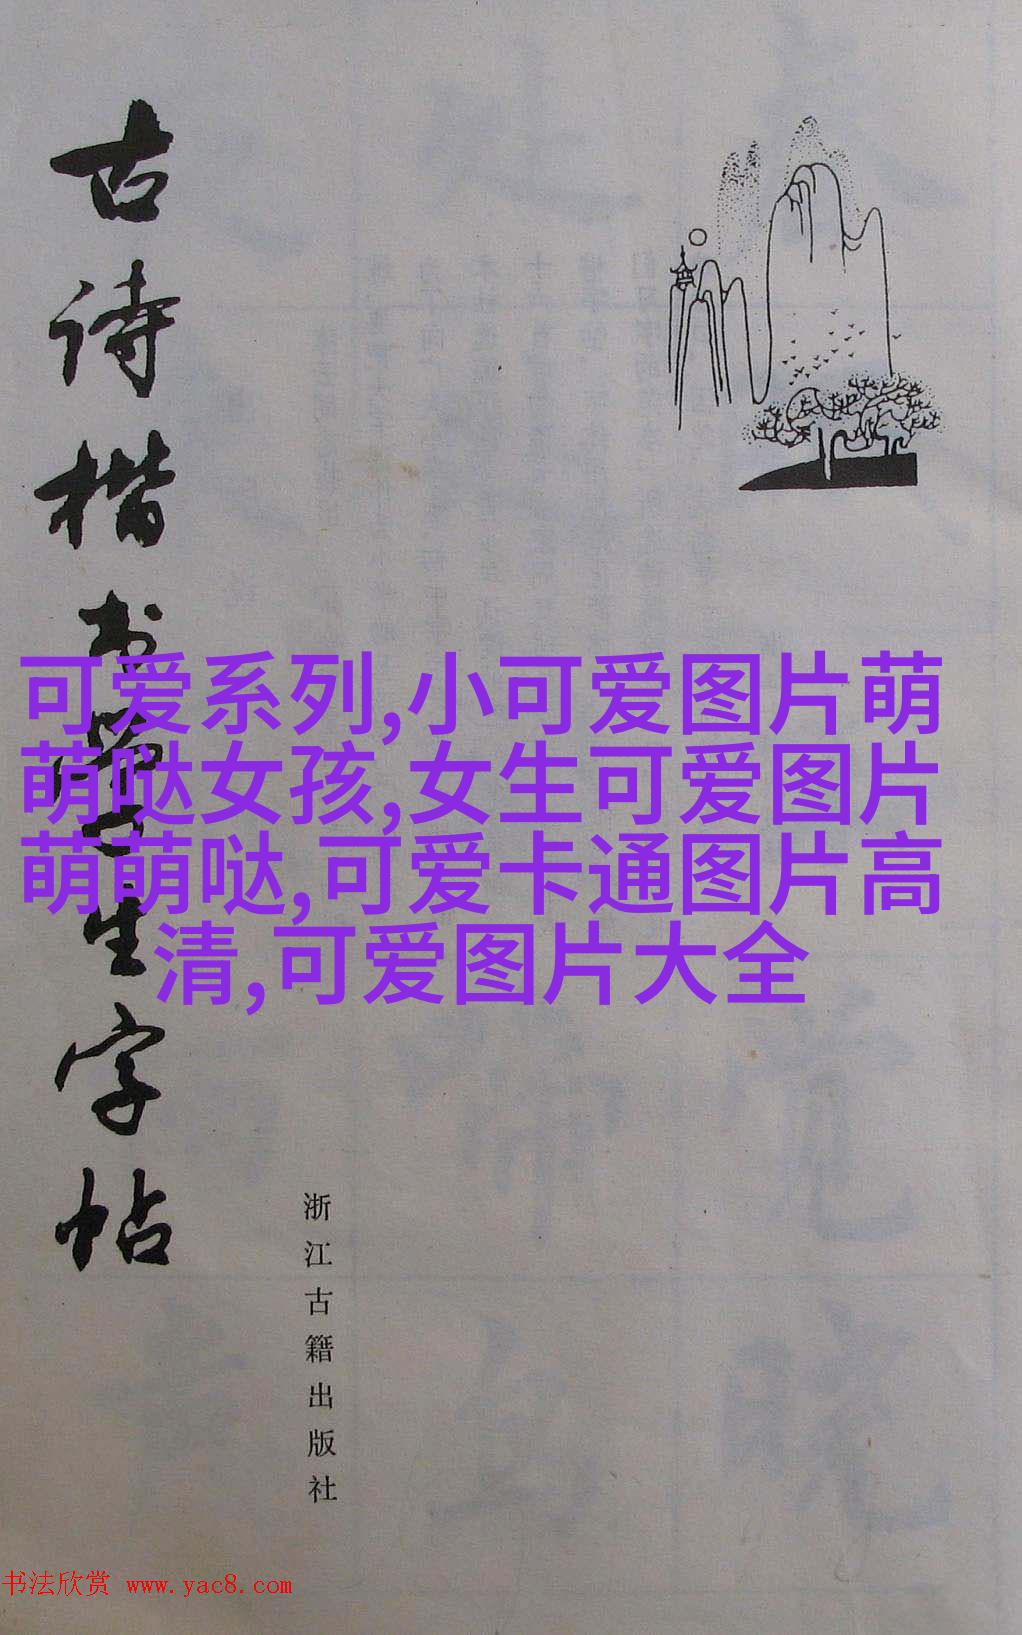 古诗楷书学生字帖
可爱系列,小可爱图片萌
萌哒女孩,女生可爱图片
萌萌哒,可爱卡通图片高
清,可爱图片大全
浙江古籍出版社
书法欣赏 www.yac8.com